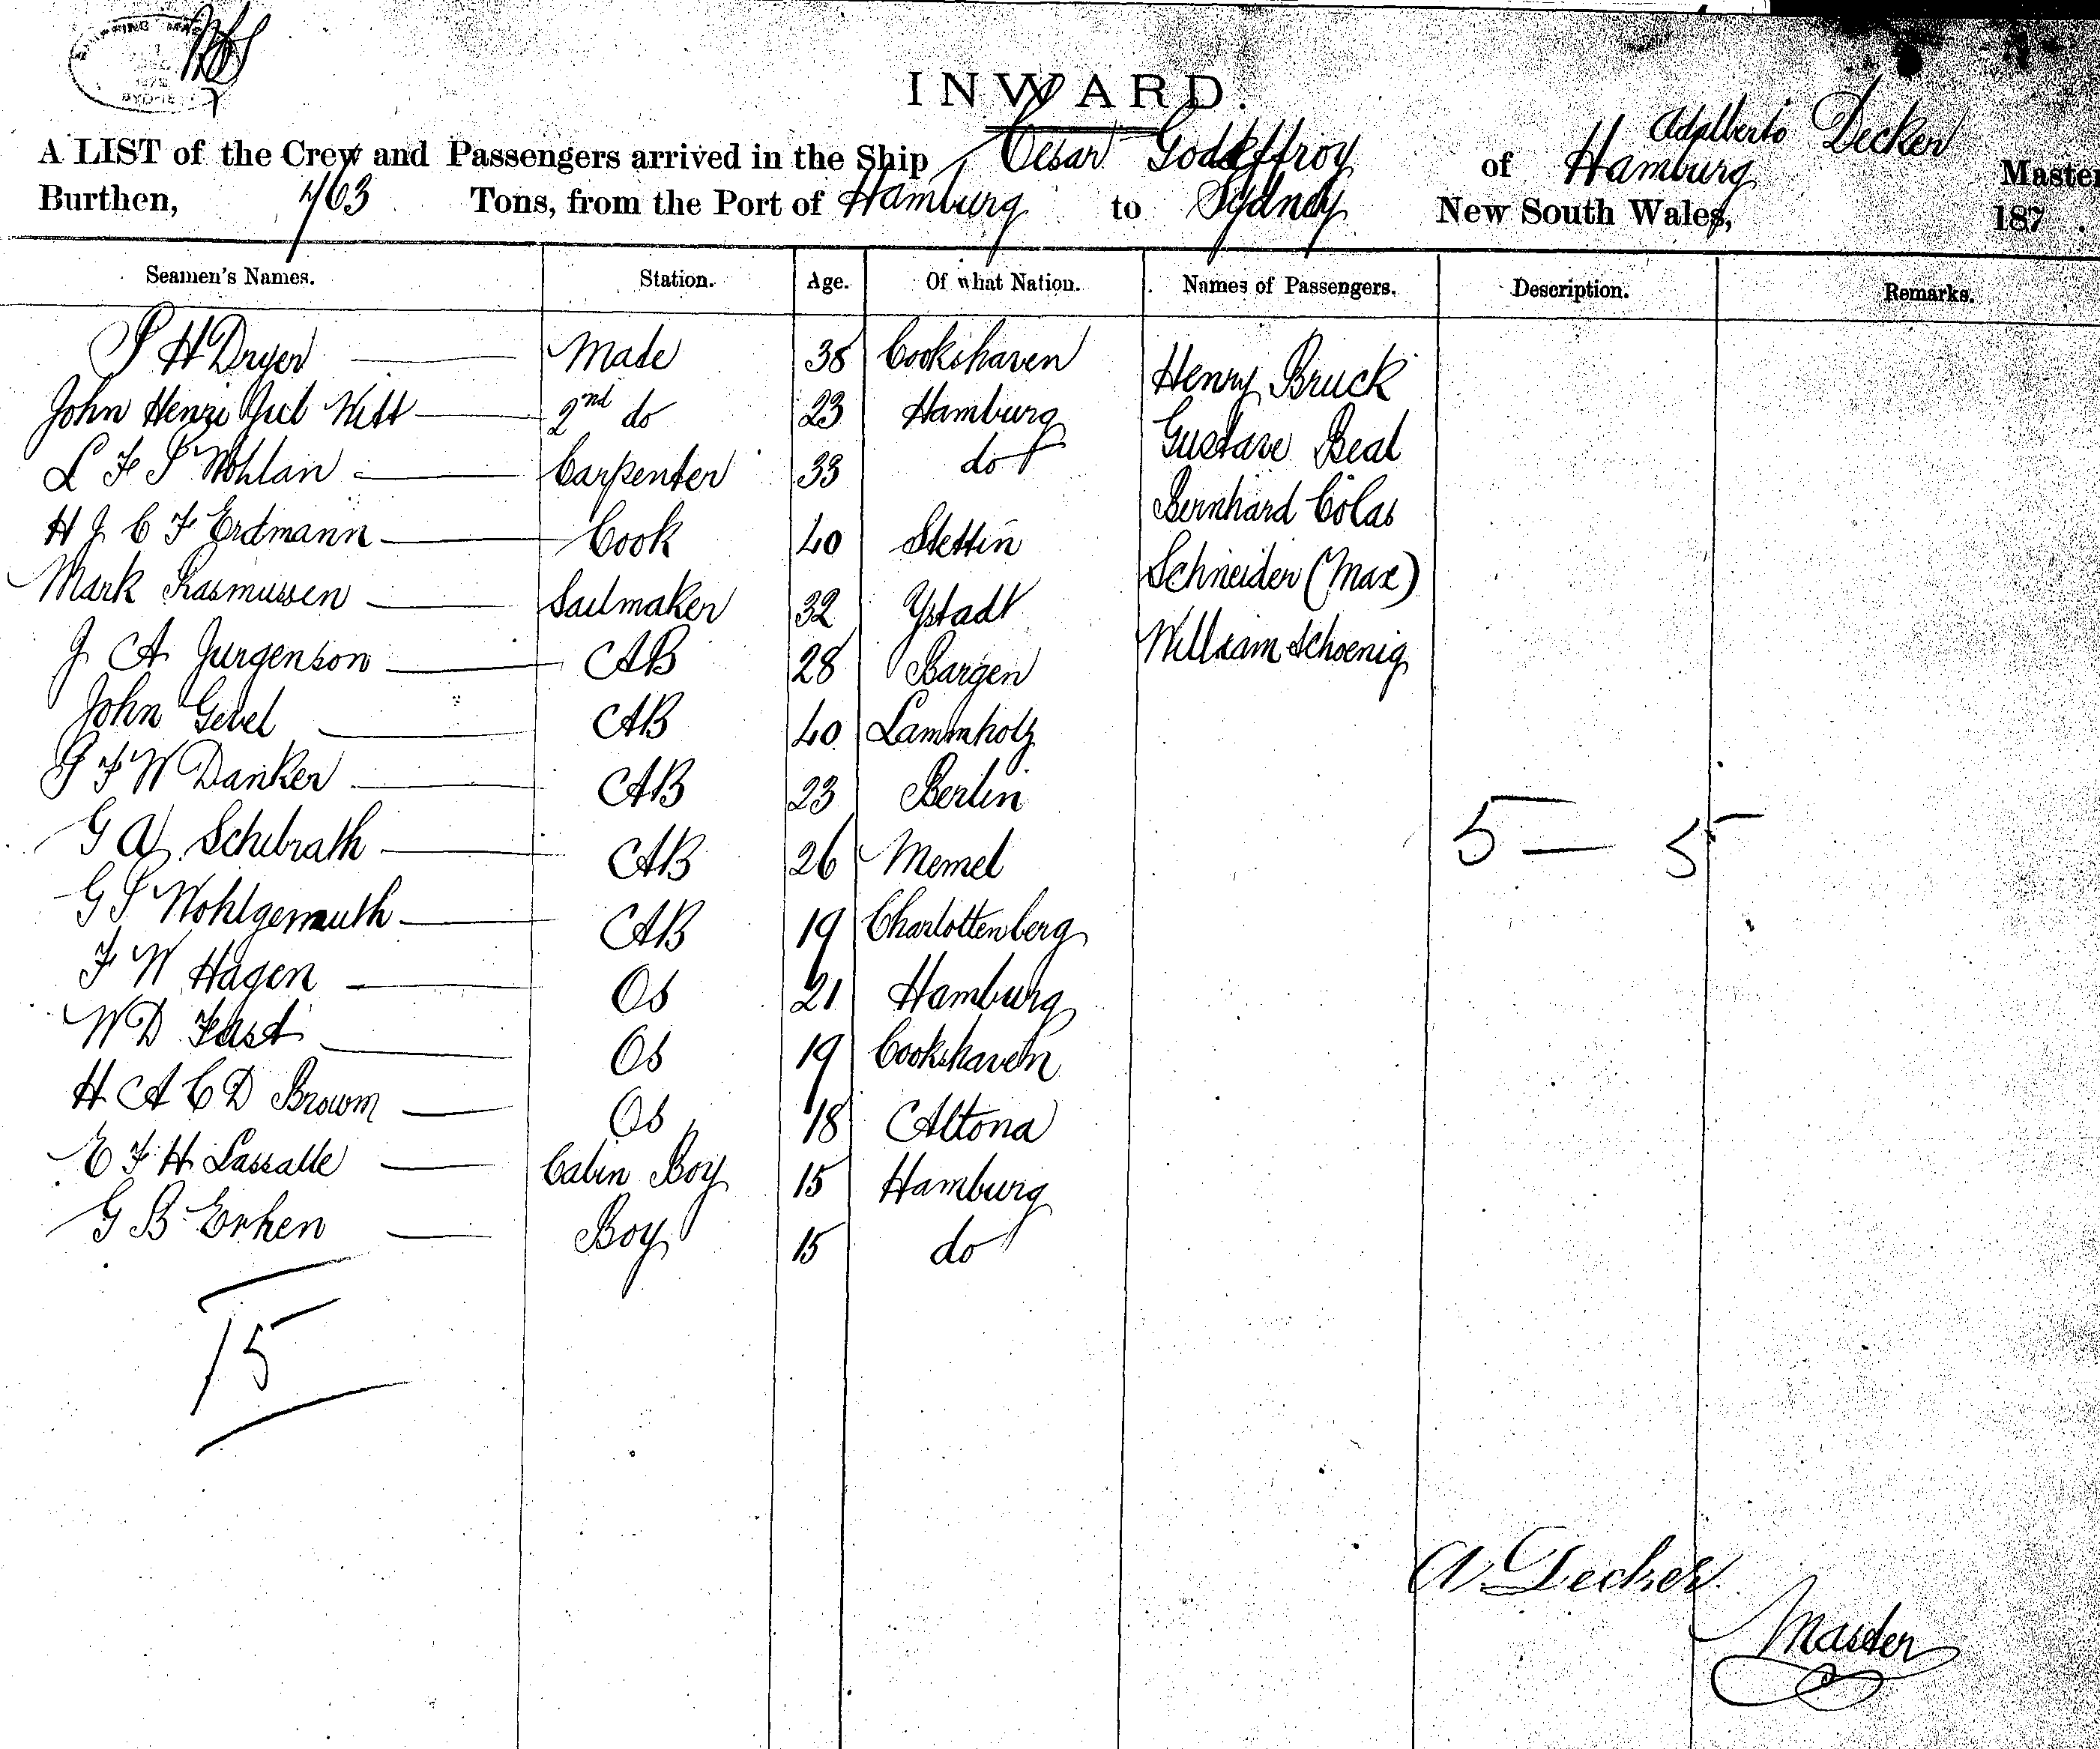 SHIPPING MAS
SYDNEY
INWARD.
Adalberto Decker
A LIST of the Crew and Passengers arrived in the Ship Cesar Godeffroy of Hamburg Master
Burthen, 463 Tons, from the Port of Hamburg to Sydney New South Wales, 187 .
Seamen's Names. Station. Age. Of what Nation. Names of Passengers. Description. Remarks.
P H Dryer Made 38 Cookshaven Henry Bruck
John Henri Jul Witt 2nd do 23 Hamburg Gustave Beal
L F P Wohlan Carpenter 33 do Bernhard Colas
H J C F Erdmann Cook 40 Stettin Schneider (Max)
Mark Rasmussen Sailmaker 32 Ystadt William Schoenig
J A Jurgenson AB 28 Bargen
John Gebel AB 40 Lammholz
F W Danker AB 23 Berlin
G A Schibrath AB 26 Memel
5 — 5
G P Wohlgemuth AB 19 Charlottenberg
F W Hagen OS 21 Hamburg
W D Fast OS 19 Cookshaven
H A C D Browm OS 18 Altona
E F H Lassalle Cabin Boy 15 Hamburg
G B Erhen Boy 15 do
15
A. Decker
Master